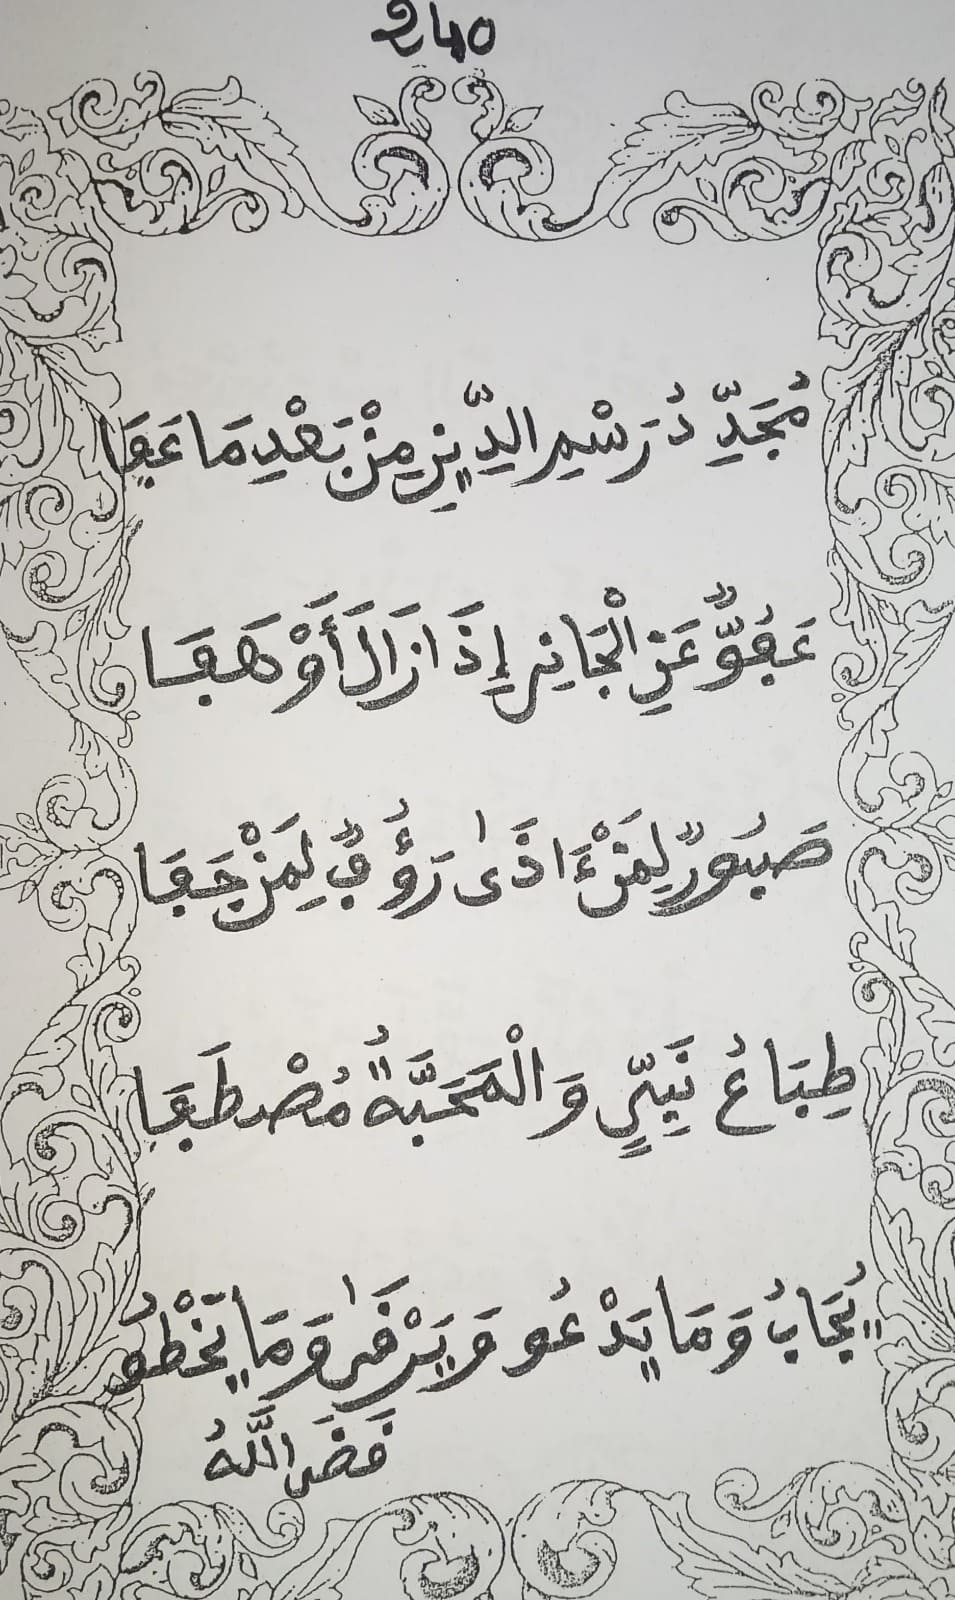 240
مُجَدِّدُ رَسْمِ الدِّينِ مِنْ بَعْدِ مَا عَفَا
عَفُوٌّ عَنِ الْجَانِي إِذَا زَالَ أَوْ هَفَا
صَبُورٌ لِمَنْ ءَاذَىٰ رَؤُفٌ لِمَنْ جَفَا
طِبَاعُ نَبِيٍّ وَالْمَحَبَّةُ مُصْطَفَا
يُجَابُ وَمَا يَدْعُو وَيَرْقَىٰ وَمَا يَخْطُو
قَضَى اللَّهُ